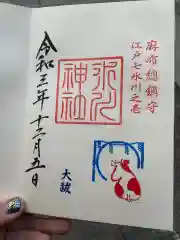 麻布総鎮守
江戸七氷川之壱
氷川
神社
大祓
令和三年十二月五日